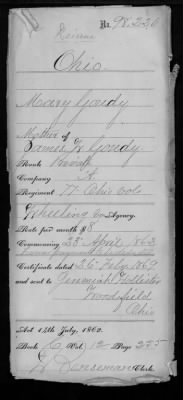 No. 98.220
Ohio.
Mary Gordy
Mother of
James W Gordy.
Rank Private
Company A.
Regiment 77 Ohio Vols
Wheeling Agency.
Rate per month $8
Commencing 23d April 1863
Certificate dated 26 Feby 1869
and sent to Jeremiah Hollister
Woodsfield
Ohio
Act 14th July, 1862.
Book C Vol. 12 Page 255
Clerk.